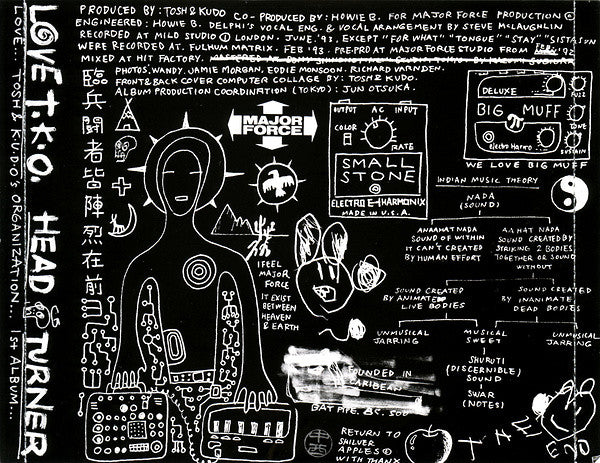 LOVE... TOSH & K.U.D.O's ORGANIZATION... 1ST ALBUM...
LOVE T.K.O. HEAD TURNER
PRODUCED BY: TOSH & KUDO CO-PRODUCED BY: HOWIE B. FOR MAJOR FORCE PRODUCTION ©
ENGINEERED: HOWIE B. DELPHI'S VOCAL ENG. & VOCAL ARANGEMENT BY STEVE McLAUGHLIN
RECORDED AT MILO STUDIO LONDON. JUNE. '93. EXCEPT "FOR WHAT" "TONGUE" "STAY" "SISTASUN
WERE RECORDED AT. FULHUM MATRIX. FEB '93. PRE-PRO AT MAJOR FORCE STUDIO FROM '92
MIXED AT HIT FACTORY.
PHOTOS, WANDY. JAMIE MORGAN, EDDIE MONSOON. RICHARD
FRONT & BACK COVER COMPUTER COLLAGE BY: TOSH & KUDO.
ALBUM PRODUCTION COORDINATION (TOKYO): JUN OTSUKA.
臨兵闘者皆陣烈在前
MAJOR
FORCE
OUTPUT AC INPUT
COLOR
RATE
SMALL
STONE
ELECTRO-HARMONIX
MADE IN U.S.A.
DELUXE
FUZZ
BIG π MUFF
TONE
Electro Harmo
SUSTAIN
WE LOVE BIG MUFF
INDIAN MUSIC THEORY
NADA
(SOUND)
ANAAHAT NADA
SOUND OF WITHIN
IT CAN'T CREATED
BY HUMAN EFFORT
AAHAT NADA
SOUND CREATED BY
STRIKING 2 BODIES
TOGETHER OR SOUND
WITHOUT
SOUND CREATED
BY ANIMATED
LIVE BODIES
SOUND CREATED
BY INANIMATE
DEAD BODIES
UNMUSICAL
JARRING
MUSICAL
SWEET
UNMUSICAL
JARRING
SHURUTI
(DISCERNIBLE)
SOUND
SWAR
(NOTES)
I FEEL
MAJOR
FORCE
IT EXIST
BETWEEN
HEAVEN
& EARTH
FOUNDED IN
CARIBEAN
BAT PIPE. BC. 500
RETURN TO
SHILVER
APPLES
WITH THANX
THE
END